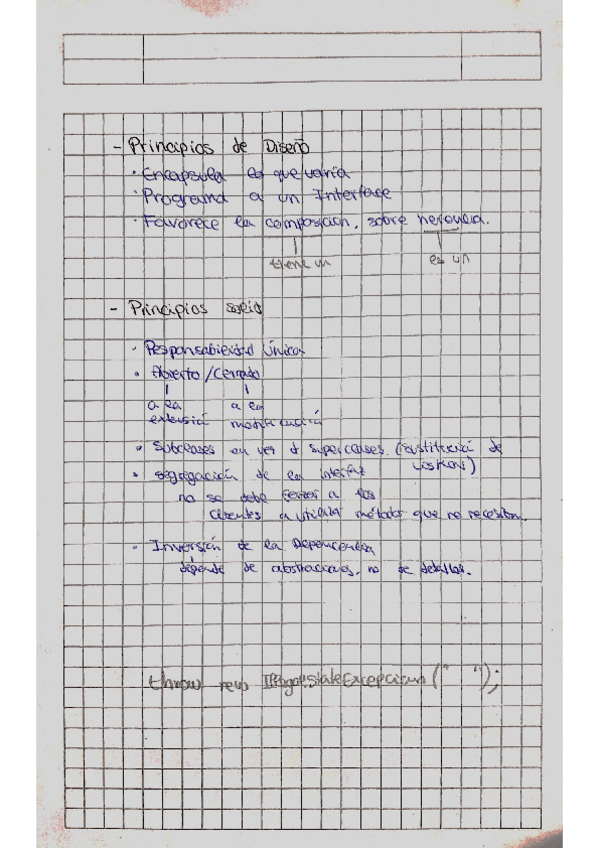 - Principios de Diseño
· Encapsula lo que varía
· Programa a un Interface
· Favorece la composición, sobre herencia.
tiene un
es un
- Principios solid
· Responsabilidad Única
· Abierto / Cerrado
a la a la
extensió modificació
· Subclases en vez d superclases. (sustitució de
Liskov)
· segregación de la interfaz
no se debe forzar a los
clientes a utilizar métodos que no necesitan.
· Inversión de la Dependencia
depende de abstracciones, no de detalles.
throw new IllegalStateExcepcion(" ");